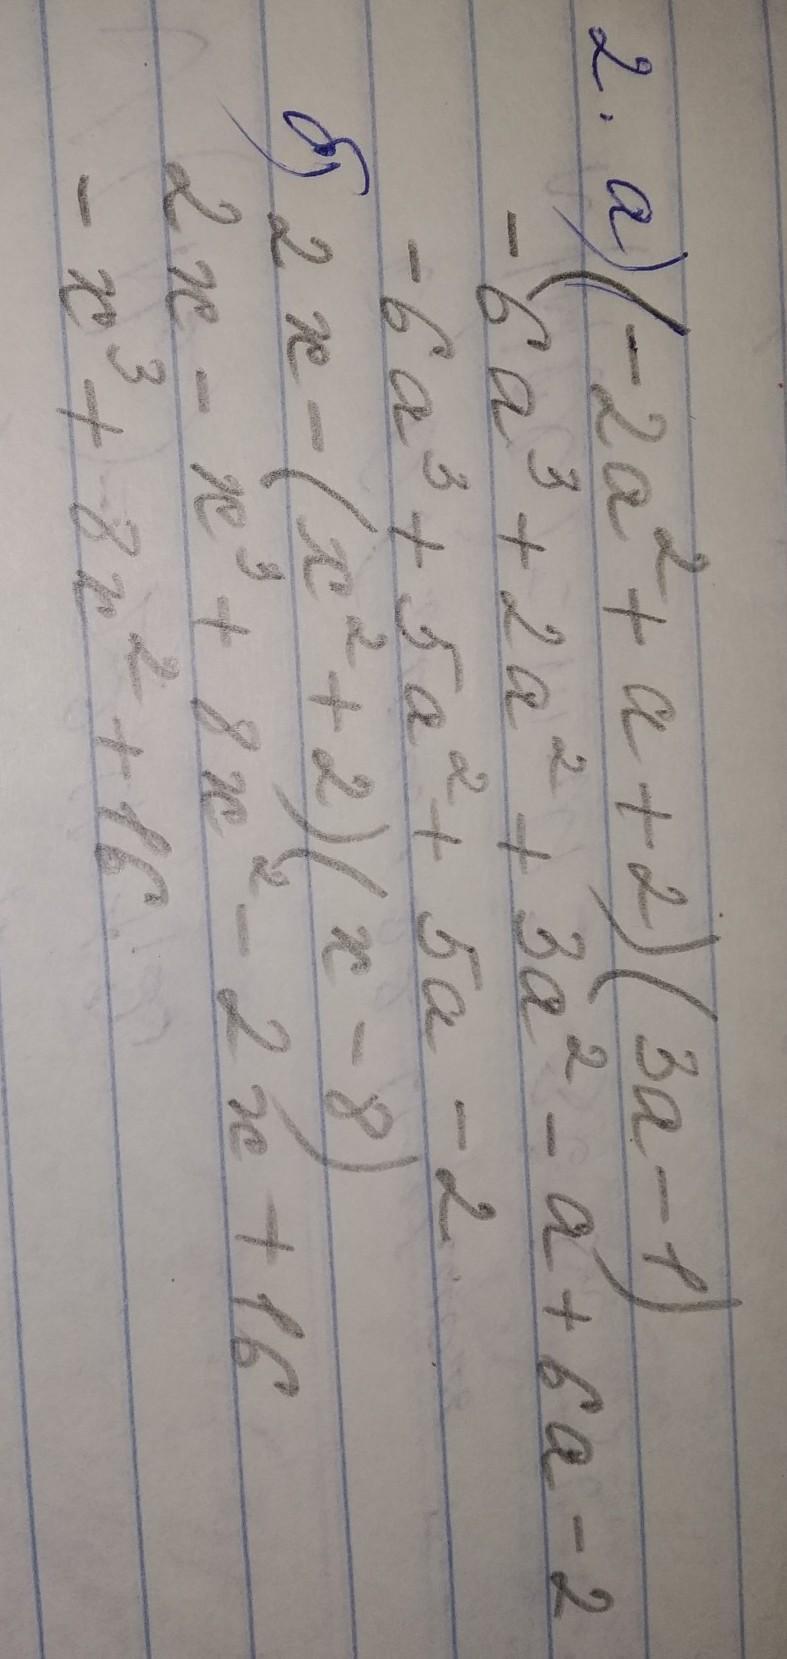 2. а) (-2a²+a+2)(3a-1)
-6a³+2a²+3a²-a+6a-2
-6a³+5a²+5a-2
б) 2x-(x²+2)(x-8)
2x-x³+8x²-2x+16
-x³+8x²+16